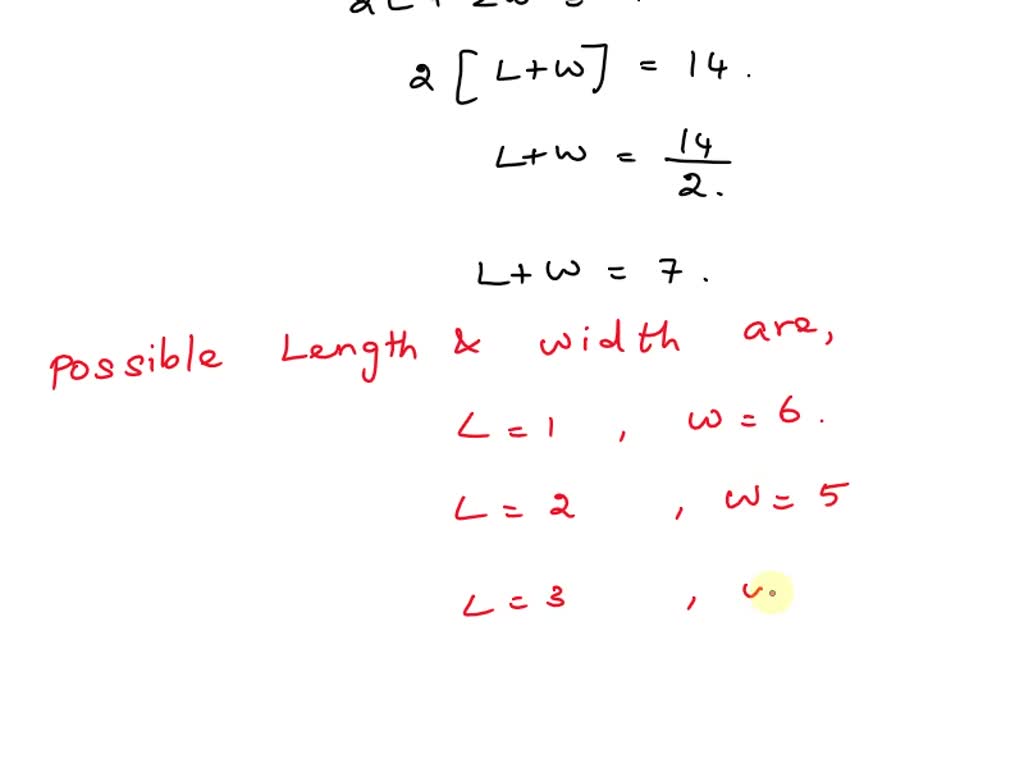 2[L+W] = 14.
L+W = 14/2.
L+W = 7.
Possible Length & width are,
L = 1 , W = 6.
L = 2 , W = 5
L = 3 ,